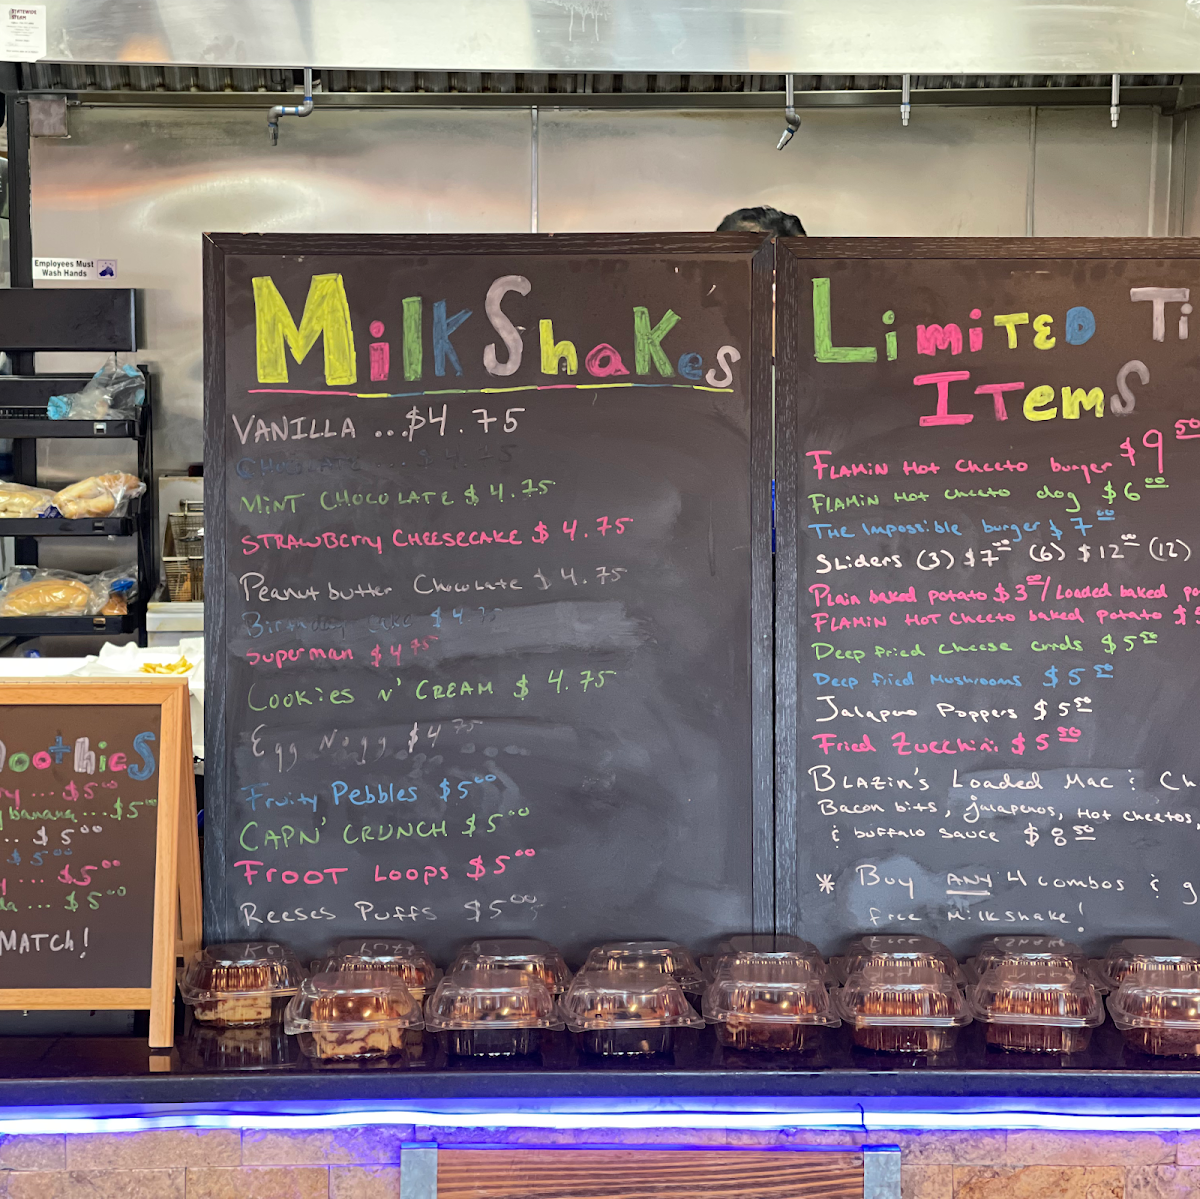 STATEWIDE
Employees Must
Wash Hands
MilkShakes
VANILLA ...$4.75
CHOCOLATE ... $4.75
MiNT CHOCOLATE $4.75
STRAWBErry CHEESECAKE $4.75
Peanut butter Chocolate $4.75
Birthday cake $4.75
Superman $4.75
Cookies N' CREAM $4.75
Egg Nogg $4.75
Fruity Pebbles $5.00
CAPN' CRUNCH $5.00
FROOT Loops $5.00
Reeses Puffs $5.00
LimiTED Ti
ITEmS
FLAMiN Hot Cheeto burger $9.50
FLAMiN Hot cheeto dog $6.00
The Impossible burger $7.00
Sliders (3) $7.00 (6) $12.00 (12)
Plain baked potato $3.00/Loaded baked po
FLAMiN HoT Cheeto baked Potato $
Deep fried Cheese curds $5.50
Deep fried Mushrooms $5.50
Jalapeno Poppers $5.50
Fried Zucchini $5.50
BLAZiN's Loaded Mac & Ch
Bacon bits, jalapenos, Hot cheetos,
& buffalo sauce $8.50
* Buy ANY 4 combos & g
free Milkshake!
oothieS
ry ... $5.00
y banana ... $5.00
.. $5.00
$5.00
y ... $5.00
da ... $5.00
MATCh!